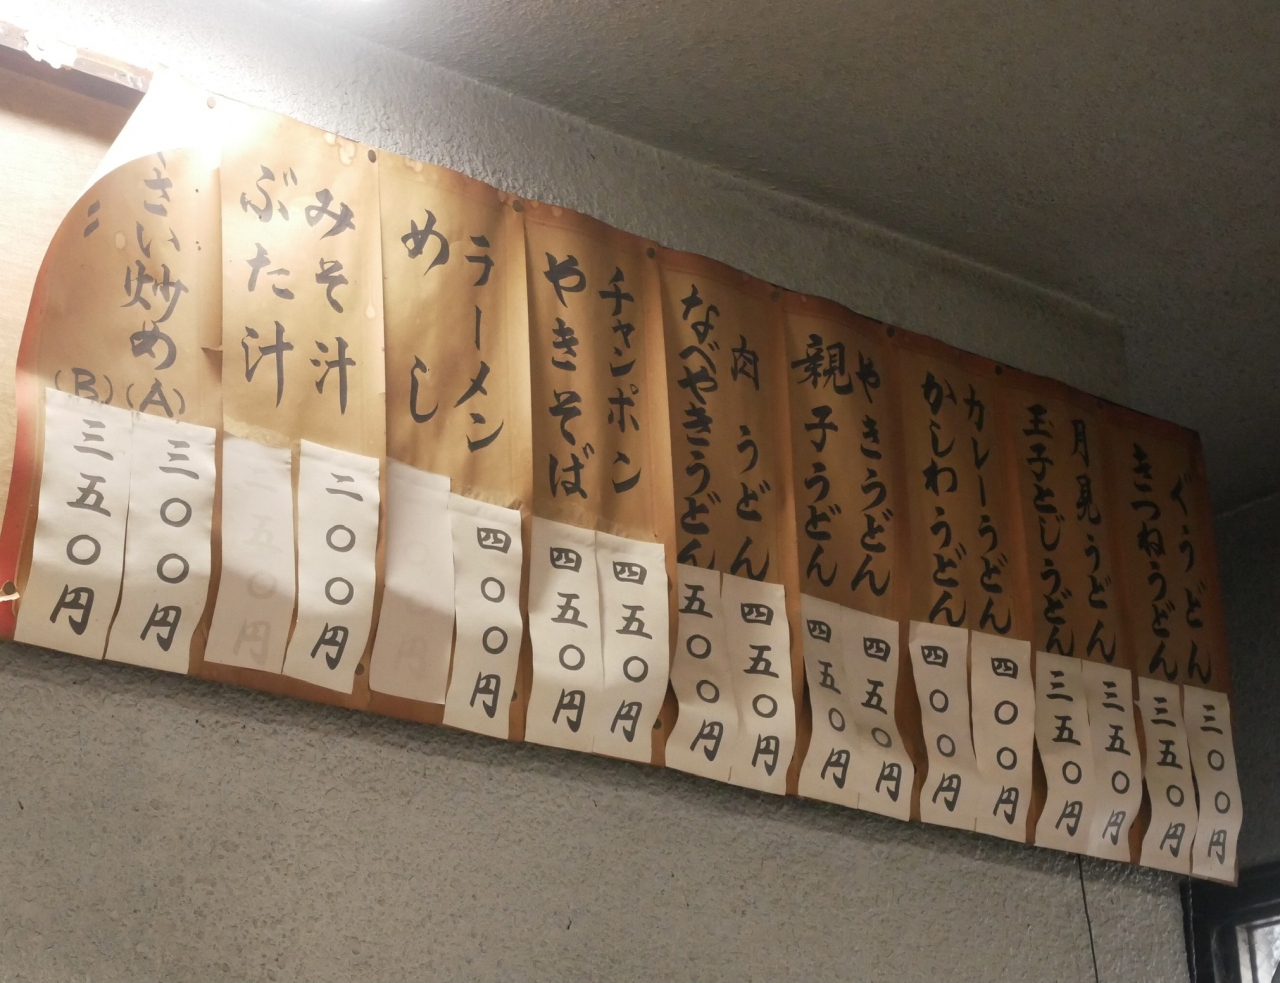 うどん
三〇〇円
きつねうどん
三五〇円
月見うどん
三五〇円
玉子とじうどん
三五〇円
カレーうどん
四〇〇円
かしわうどん
四〇〇円
やきうどん
四五〇円
親子うどん
四五〇円
肉うどん
四五〇円
なべやきうどん
五〇〇円
チャンポン
四五〇円
やきそば
四五〇円
ラーメン
四〇〇円
めし
みそ汁
二〇〇円
ぶた汁
五〇円
さい炒め(A)
三〇〇円
〃(B)
三五〇円